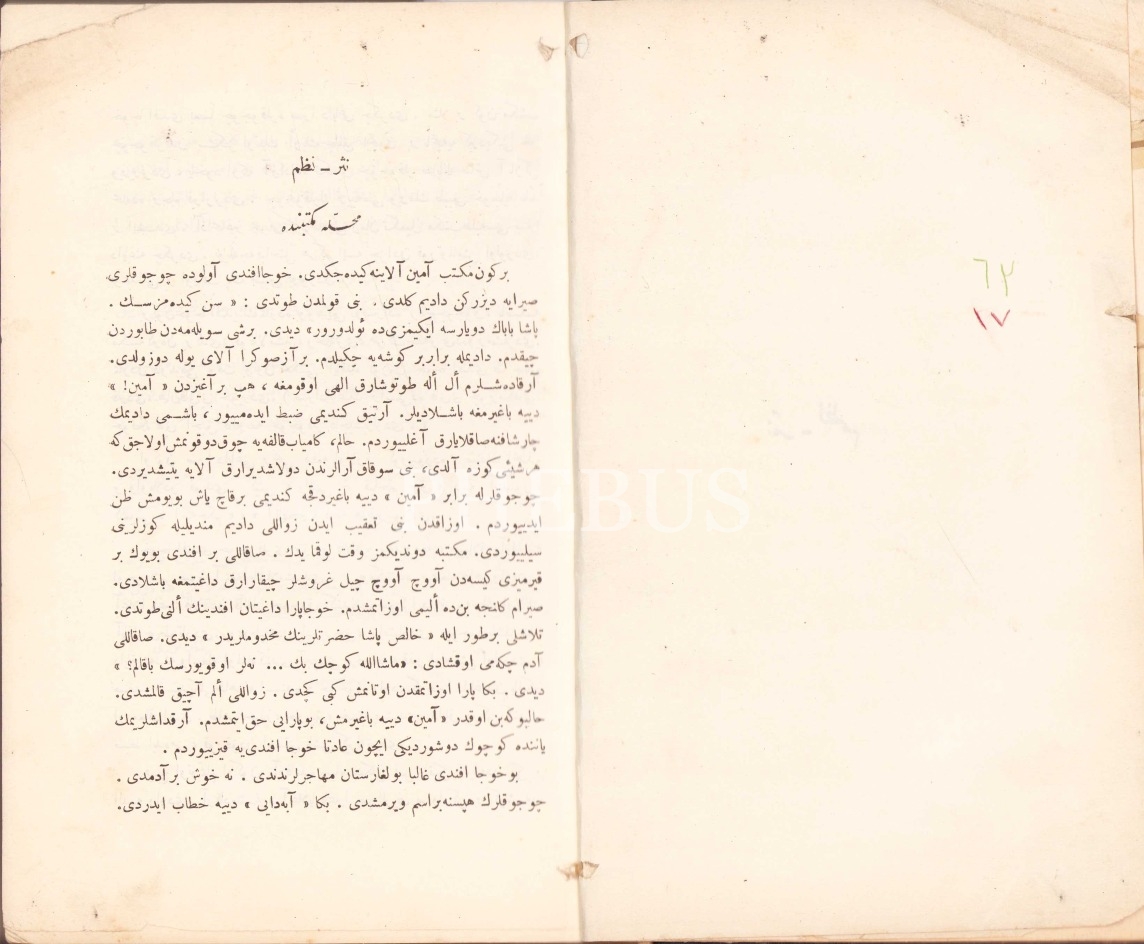 نثر ـ نظم
محله مكتبنده
بركون مكتب آمین آلاینه كیده‌جكدی. خوجا افندی آولوده چوجوقلری
صیرایه دیزركن دادیم كلدی. بنی قولمدن طوتدی : « سن كیده‌مزسك .
پاشا باباك دویارسه ایكیمزی‌ده ئولدورور» دیدی. برشی سویله‌مه‌دن طابوردن
چیقدم. دادیمله برابر بر كوشه‌یه چكیلدم. بر آز صوكرا آلای یوله دوزولدی.
آرقاده‌شلرم أل أله طوتوشارق الهی اوقومغه ، هپ بر آغیزدن « آمین! »
دییه باغیرمغه باشلادیلر. آرتیق كندیمی ضبط ایده‌مییور ، باشمی دادیمك
چارشافنه صاقلایارق آغلییوردم. حالم، كامیاب قالفه‌یه چوق دوقونمش اولاجق كه
هرشیئی كوزه آلدی، بنی سوقاق آرالرندن دولاشدیرارق آلایه یتیشدیردی.
چوجوقلرله برابر « آمین » دییه باغیردقجه كندیمی برقاچ یاش بویومش ظن
ایدییوردم . اوزاقدن بنی تعقیب ایدن زواللی دادیم مندیلیله كوزلرینی
سیلییوردی. مكتبه دوندیكمز وقت لوقما یدك . صاقاللی بر افندی بویوك بر
قیرمیزی كیسه‌دن آووچ آووچ چیل غروشلر چیقارارق داغیتمغه باشلادی.
صیرام كلنجه بن‌ده ألیمی اوزاتمشدم. خوجا پارا داغیتان افندینك ألنی طوتدی.
تلاشلی برطور ایله « خالص پاشا حضرتلرینك مخدوملریدر » دیدی. صاقاللی
آدم چكه‌می اوقشادی : «ماشاالله كوچك بك ... نه‌لر اوقویورسك باقالم؟ »
دیدی . بكا پارا اوزاتمقدن اوتانمش كبی كچدی . زواللی ألم آچیق قالمشدی.
حالبوكه بن اوقدر «آمین» دییه باغیرمش، بوپارایی حق ایتمشدم. آرقداشلریمك
یاننده كوچوك دوشوردیكی ایچون عادتا خوجا افندی‌یه قیزییوردم .
بوخوجا افندی غالبا بولغارستان مهاجرلرندندی . نه خوش برآدمدی .
چوجوقلرك هپسنه براسم ویرمشدی . بكا « آبه‌دایی » دییه خطاب ایدردی.
٦٢
١٧
PHEBUS